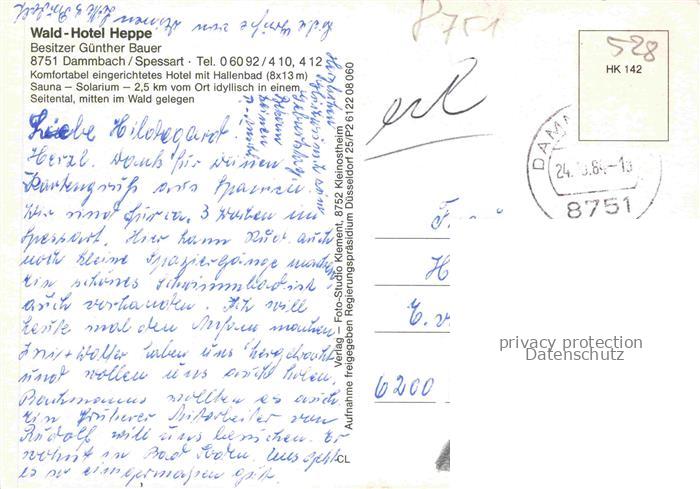 Wald-Hotel Heppe
Besitzer Günther Bauer
8751 Dammbach/Spessart · Tel. 0 60 92 / 4 10, 4 12
Komfortabel eingerichtetes Hotel mit Hallenbad (8x13 m)
Sauna – Solarium – 2,5 km vom Ort idyllisch in einem
Seitental, mitten im Wald gelegen
Liebe Hildegard!
Herzl. Dank für deinen
Kartengruß aus Spanien.
Wir sind für ca. 3 Wochen im
Spessart. Hier kann Rud. auch
noch kleine Spaziergänge machen
ein schönes Schwimmbad ist
auch vorhanden. Ich will
heute mal den Anfang machen
+ Walter haben uns hergebracht
und wollen uns auch holen.
wollten es auch
Ein früherer Mitarbeiter von
Rudolf will uns besuchen. Er
wohnt in Bad Soden. Uns geht
es so einigermaßen gut.
Verlag – Foto-Studio Klement, 8752 Kleinostheim
Aufnahme freigegeben Regierungspräsidium Düsseldorf 25/P2 6122 08 060
CL
8751
528
HK 142
DAMM
24.
.84-1
8751
F
H
E.v
6200
privacy protection
Datenschutz